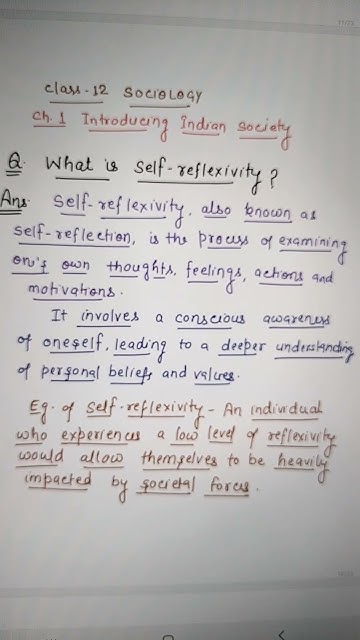 Class-12 SOCIOLOGY
Ch.1 Introducing Indian Society
Q. What is Self-reflexivity?
Ans. Self-reflexivity, also known as
self-reflection, is the process of examining
one's own thoughts, feelings, actions and
motivations.
It involves a conscious awareness
of oneself, leading to a deeper understanding
of personal beliefs and values.
Eg. of Self-reflexivity - An individual
who experiences a low level of reflexivity
would allow themselves to be heavily
impacted by societal forces.